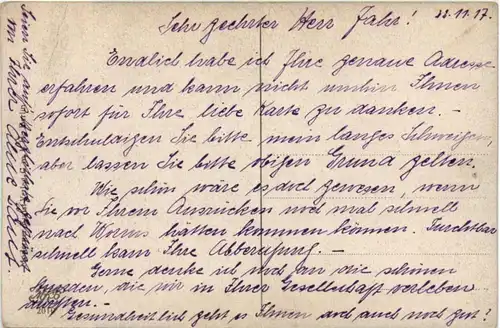 22.11.17.
Sehr geehrter Herr Fahr!
Endlich habe ich Ihre genaue Adresse
erfahren und kann nicht umhin Ihnen
sofort für Ihre liebe Karte zu danken. -
Entschuldigen Sie bitte mein langes Schweigen,
aber lassen Sie bitte obigen Grund gelten.
Wie schön wäre es doch gewesen, wenn
Sie vor Ihrem Ausrücken noch mal schnell
nach Worms hätten kommen können. Furchtbar
schnell kam Ihre Abberufung. -
Gerne denke ich noch an die schönen
Stunden, die wir in Ihrer Gesellschaft verleben
durften. -
Gesundheitlich geht es Ihnen doch auch noch gut?
Seien Sie
von Ihrer